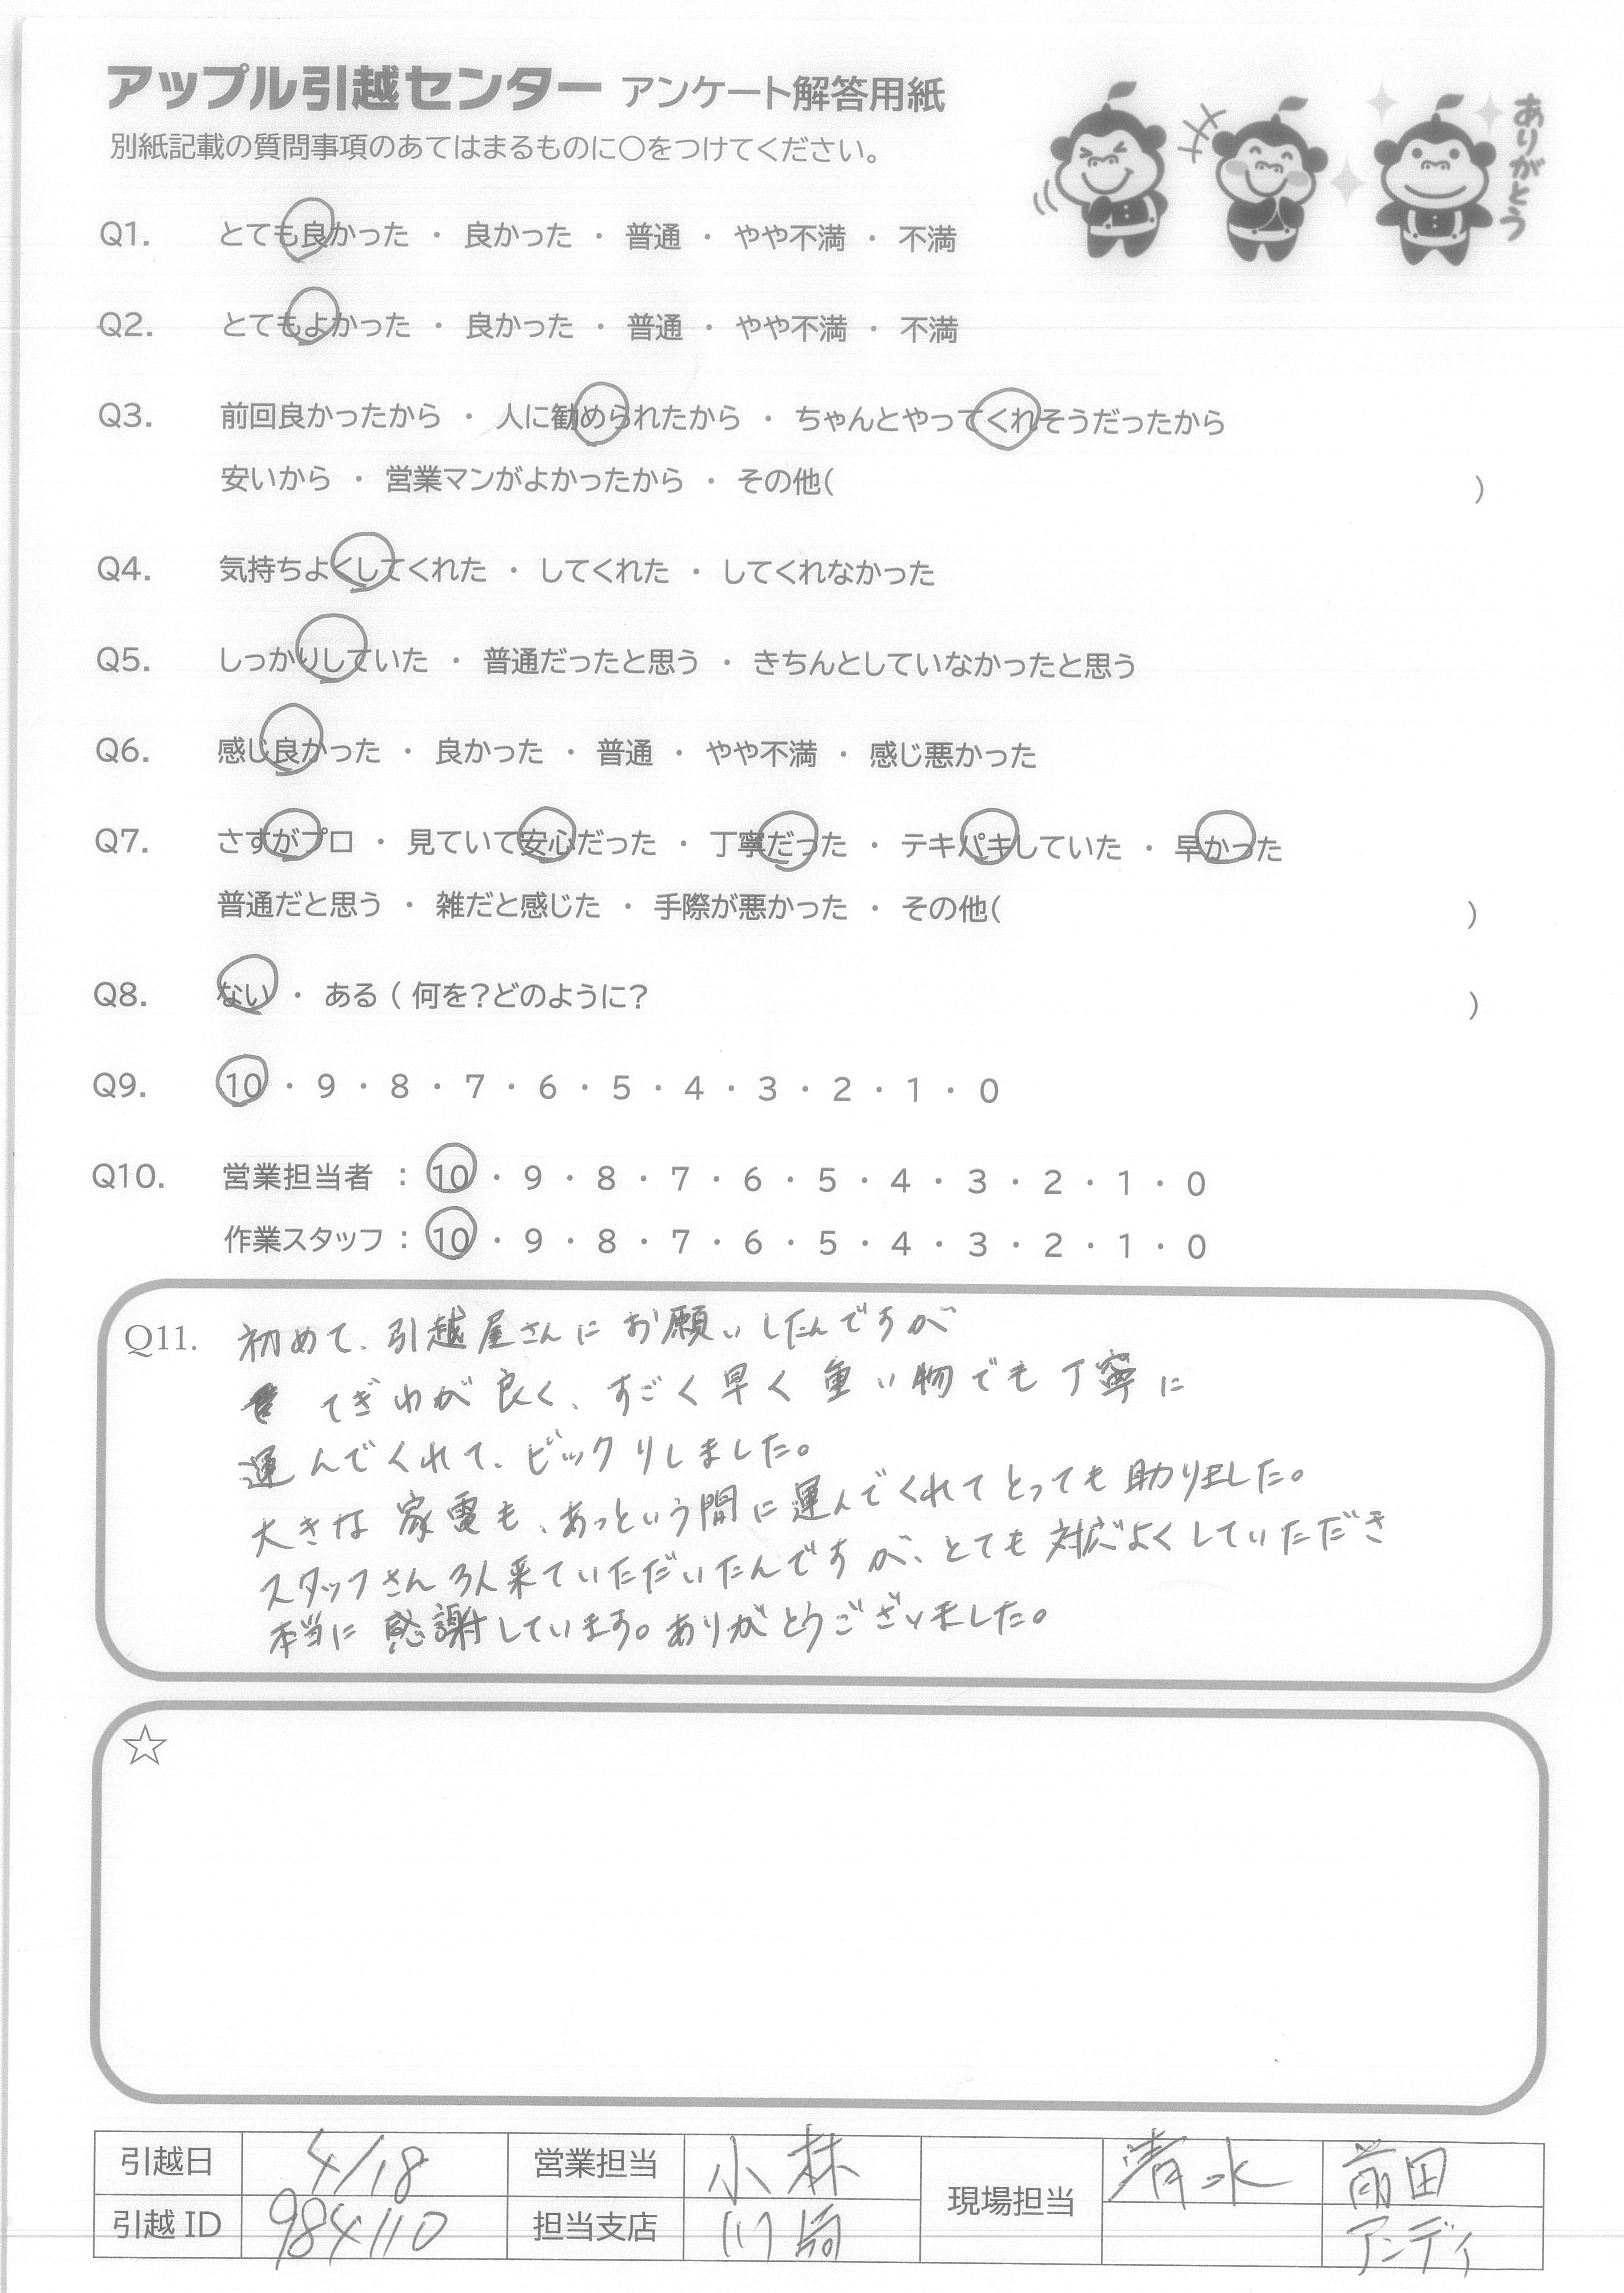 アップル引越センター アンケート解答用紙
別紙記載の質問事項のあてはまるものに〇をつけてください。
ありがとう
Q1. とても良かった ・ 良かった ・ 普通 ・ やや不満 ・ 不満
Q2. とてもよかった ・ 良かった ・ 普通 ・ やや不満 ・ 不満
Q3. 前回良かったから ・ 人に勧められたから ・ ちゃんとやってくれそうだったから
安いから ・ 営業マンがよかったから ・ その他( )
Q4. 気持ちよくしてくれた ・ してくれた ・ してくれなかった
Q5. しっかりしていた ・ 普通だったと思う ・ きちんとしていなかったと思う
Q6. 感じ良かった ・ 良かった ・ 普通 ・ やや不満 ・ 感じ悪かった
Q7. さすがプロ ・ 見ていて安心だった ・ 丁寧だった ・ テキパキしていた ・ 早かった
普通だと思う ・ 雑だと感じた ・ 手際が悪かった ・ その他( )
Q8. ない ・ ある ( 何を?どのように? )
Q9. 10 ・ 9 ・ 8 ・ 7 ・ 6 ・ 5 ・ 4 ・ 3 ・ 2 ・ 1 ・ 0
Q10. 営業担当者 : 10 ・ 9 ・ 8 ・ 7 ・ 6 ・ 5 ・ 4 ・ 3 ・ 2 ・ 1 ・ 0
作業スタッフ : 10 ・ 9 ・ 8 ・ 7 ・ 6 ・ 5 ・ 4 ・ 3 ・ 2 ・ 1 ・ 0
Q11. 初めて、引越屋さんにお願いしたんですが
てぎわが良く、すごく早く重い物でも丁寧に
運んでくれて、ビックリしました。
大きな家電も、あっという間に運んでくれてとっても助りました。
スタッフさん3人来ていただいたんですが、とても対応よくしていただき
本当に感謝しています。ありがとうございました。
☆
引越日 4/18 営業担当 小林 現場担当 清水 前田
引越 ID 984110 担当支店 川崎 アンディ